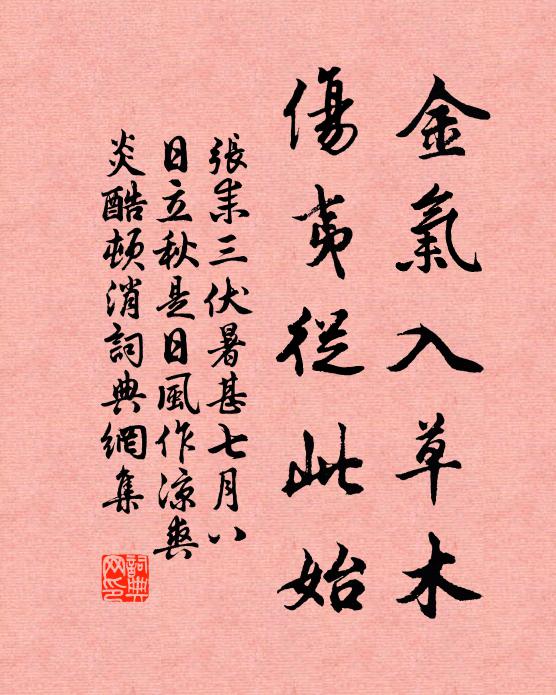 金氣入草木
傷夷從此始
張耒三伏暑甚七月八
日立秋是日風作凉爽
炎酷頓消詞典網集
詞典网印